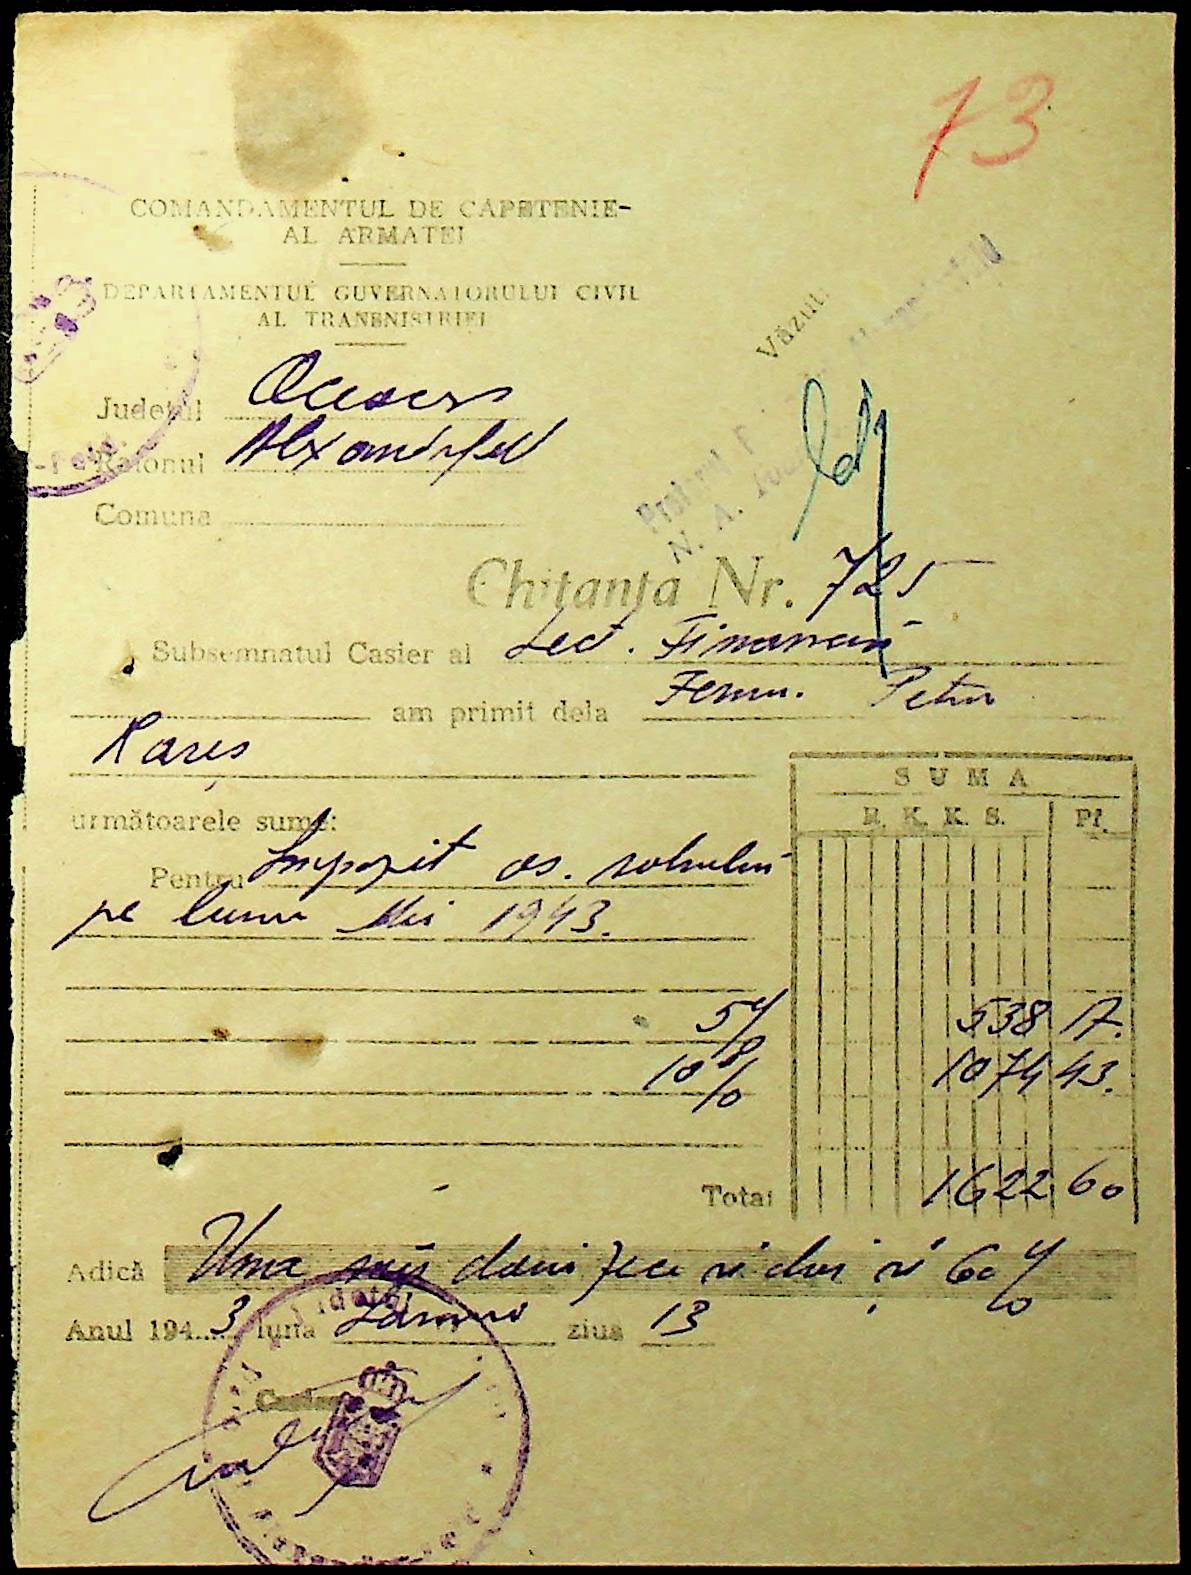 73
COMANDAMENTUL DE CAPETENIE-
AL ARMATEI
DEPARTAMENTUL GUVERNATORULUI CIVIL
AL TRANSNISTRIEI
Văzut,
Județul
Raionul Alexanderfeld
Comuna
Chitanța Nr. 725
Subsemnatul Casier al Sect. Financiar
am primit dela Ferma. Petru
Rareș
următoarele sume:
SUMA
R. K. K. S. Pf.
Pentru Impozit as. salariilor
pe luna Mai 1943.
5% 538 17.
10% 1074 43.
Total 1622 60
Adică Una mii două zeci și doi și 60 %
Anul 194 3 luna ziua 13
Casier